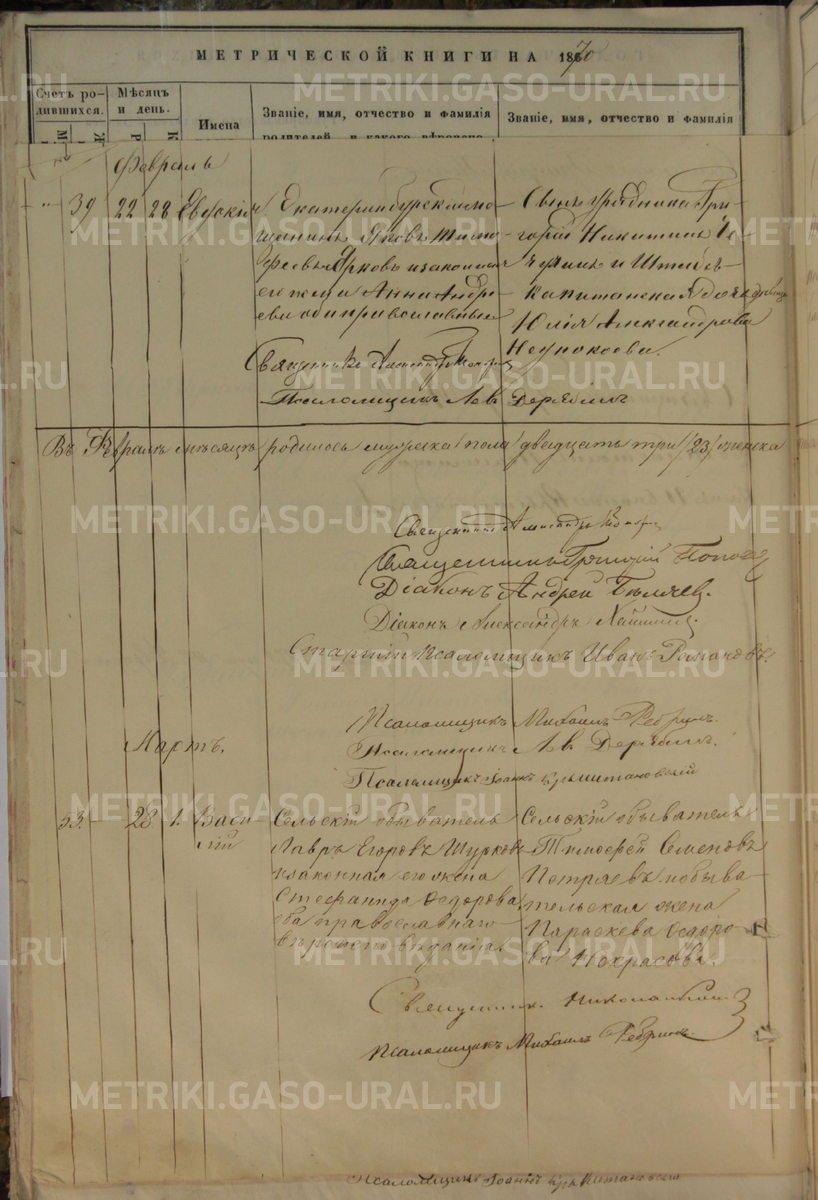 МЕТРИЧЕСКОЙ КНИГИ НА 1870
Счетъ ро-
дившихся.
Мѣсяцъ
и день.
Имена
Званіе, имя, отчество и фамилія
родителей, и какого вѣроиспо-
Званіе, имя, отчество и фамилія
М Ж Р К
Февраль
39 22 28
Екатеринбургскій мѣ-
щанинъ Яковъ Тимо-
феевъ Ярковъ и законная
его жена Анна Андре-
ева оба православные
Сынъ урядника Гри-
горій Никитинъ
и Штабсъ-
капитанская дочь дѣвица
Юлія Александрова
Священникъ Александръ
Псаломщикъ Левъ Дерябинъ
Въ Февралѣ мѣсяцѣ родилось мужеска пола двадцать три /23/ женска
Священникъ Александръ
Священникъ Григорій Поповъ
Діаконъ Андрей Бѣляевъ.
Діаконъ Александръ
Старшій псаломщикъ Иванъ Романовъ.
Псаломщикъ Михаилъ Ребринъ.
Мартъ.
Псаломщикъ Левъ Дерябинъ.
Псаломщикъ Іоаннъ
53. — 28. 1. Васи-
лій
Сельскій обыватель
Лавръ Егоровъ Шурковъ
и законная его жена
Стефанида Ѳедорова,
оба православнаго
вѣроисповѣданія.
Сельскій обыватель
Тимофей Семеновъ
Петряевъ и обыва-
тельская жена
Параскева Ѳедоро-
ва Некрасова.
Священникъ Николай
Псаломщикъ Михаилъ Ребринъ.
Псаломщикъ Іоаннъ
METRIKI.GASO-URAL.RU